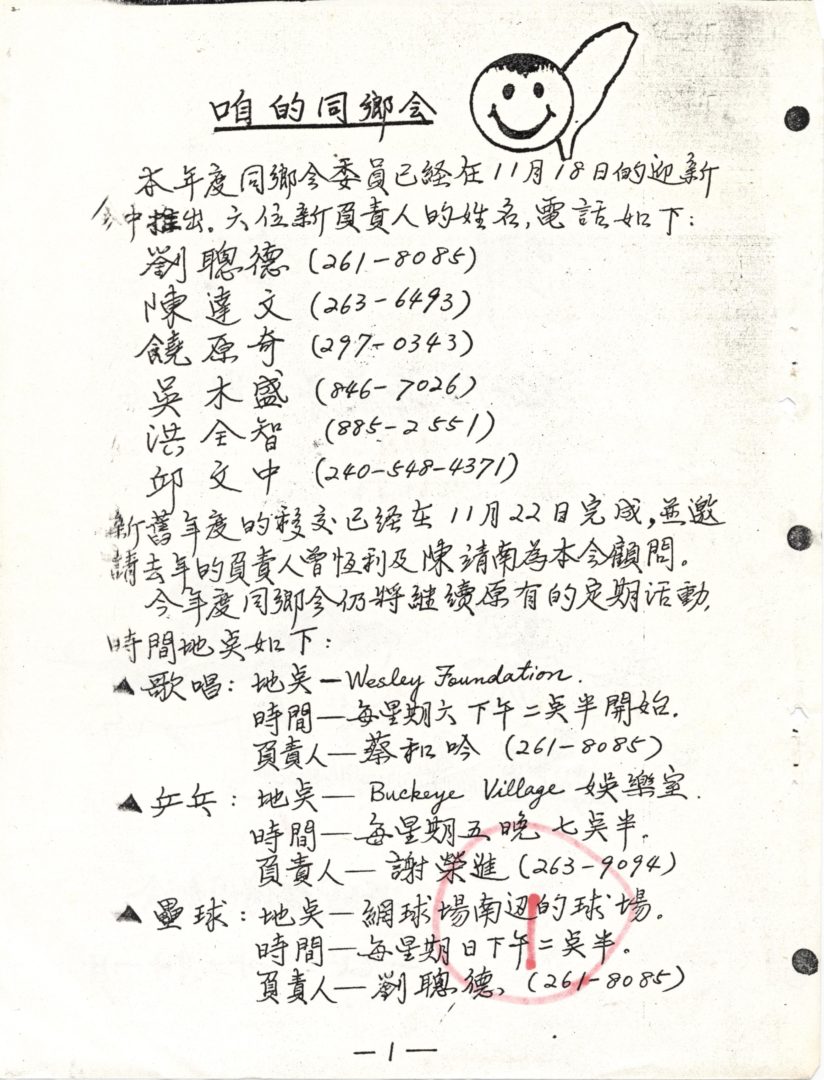 咱的同鄉会
本年度同鄉会委員已経在11月18日的迎新
会中推出。六位新負責人的姓名,電話如下:
劉聰德 (261-8085)
陳達文 (263-6493)
饒原奇 (297-0343)
吳木盛 (846-7026)
洪全智 (885-2551)
邱文中 (240-548-4371)
新舊年度的移交已経在11月22日完成,並邀
請去年的負責人曾恆利及陳靖南為本会顧問。
今年度同鄉会仍將継續原有的定期活動,
時間地点如下:
▲歌唱: 地点—Wesley Foundation.
時間—每星期六下午二点半開始.
負責人—蔡和吟 (261-8085)
▲乒乓: 地点—Buckeye Village 娛樂室.
時間—每星期五晚七点半.
負責人—謝榮進 (263-9094)
▲壘球: 地点—網球場南边的球場。
時間—每星期日下午二点半.
負責人—劉聰德、(261-8085)
—1—